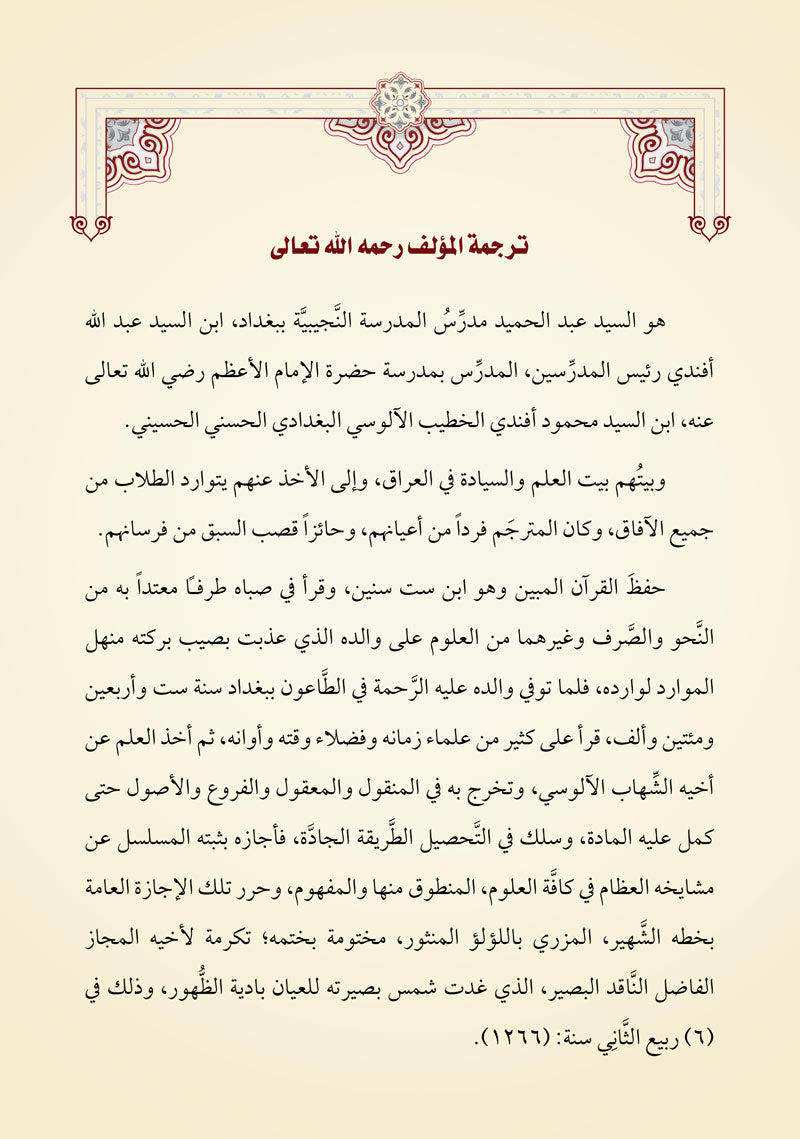 ترجمة المؤلف رحمه الله تعالى
هو السيد عبد الحميد مدرِّسُ المدرسة النَّجيبيَّة ببغداد، ابن السيد عبد الله
أفندي رئيس المدرِّسين، المدرِّس بمدرسة حضرة الإمام الأعظم رضي الله تعالى
عنه، ابن السيد محمود أفندي الخطيب الآلوسي البغدادي الحسني الحسيني.
وبيتُهم بيت العلم والسيادة في العراق، وإلى الأخذ عنهم يتوارد الطلاب من
جميع الآفاق، وكان المترجَم فرداً من أعيانهم، وحائزاً قصب السبق من فرسانهم.
حفظَ القرآن المبين وهو ابن ست سنين، وقرأ في صباه طرفـًا معتداً به من
النَّحو والصَّرف وغيرهما من العلوم على والده الذي عذبت بصيب بركته منهل
الموارد لوارده، فلما توفي والده عليه الرَّحمة في الطَّاعون ببغداد سنة ست وأربعين
ومئتين وألف، قرأ على كثير من علماء زمانه وفضلاء وقته وأوانه، ثم أخذ العلم عن
أخيه الشِّهاب الآلوسي، وتخرج به في المنقول والمعقول والفروع والأصول حتى
كمل عليه المادة، وسلك في التَّحصيل الطَّريقة الجادَّة، فأجازه بثبته المسلسل عن
مشايخه العظام في كافَّة العلوم، المنطوق منها والمفهوم، وحرر تلك الإجازة العامة
بخطه الشَّهير، المزري باللؤلؤ المنثور، مختومة بختمه؛ تكرمة لأخيه المجاز
الفاضل النَّاقد البصير، الذي غدت شمس بصيرته للعيان بادية الظُّهور، وذلك في
(٦) ربيع الثَّانِي سنة: (١٢٦٦).